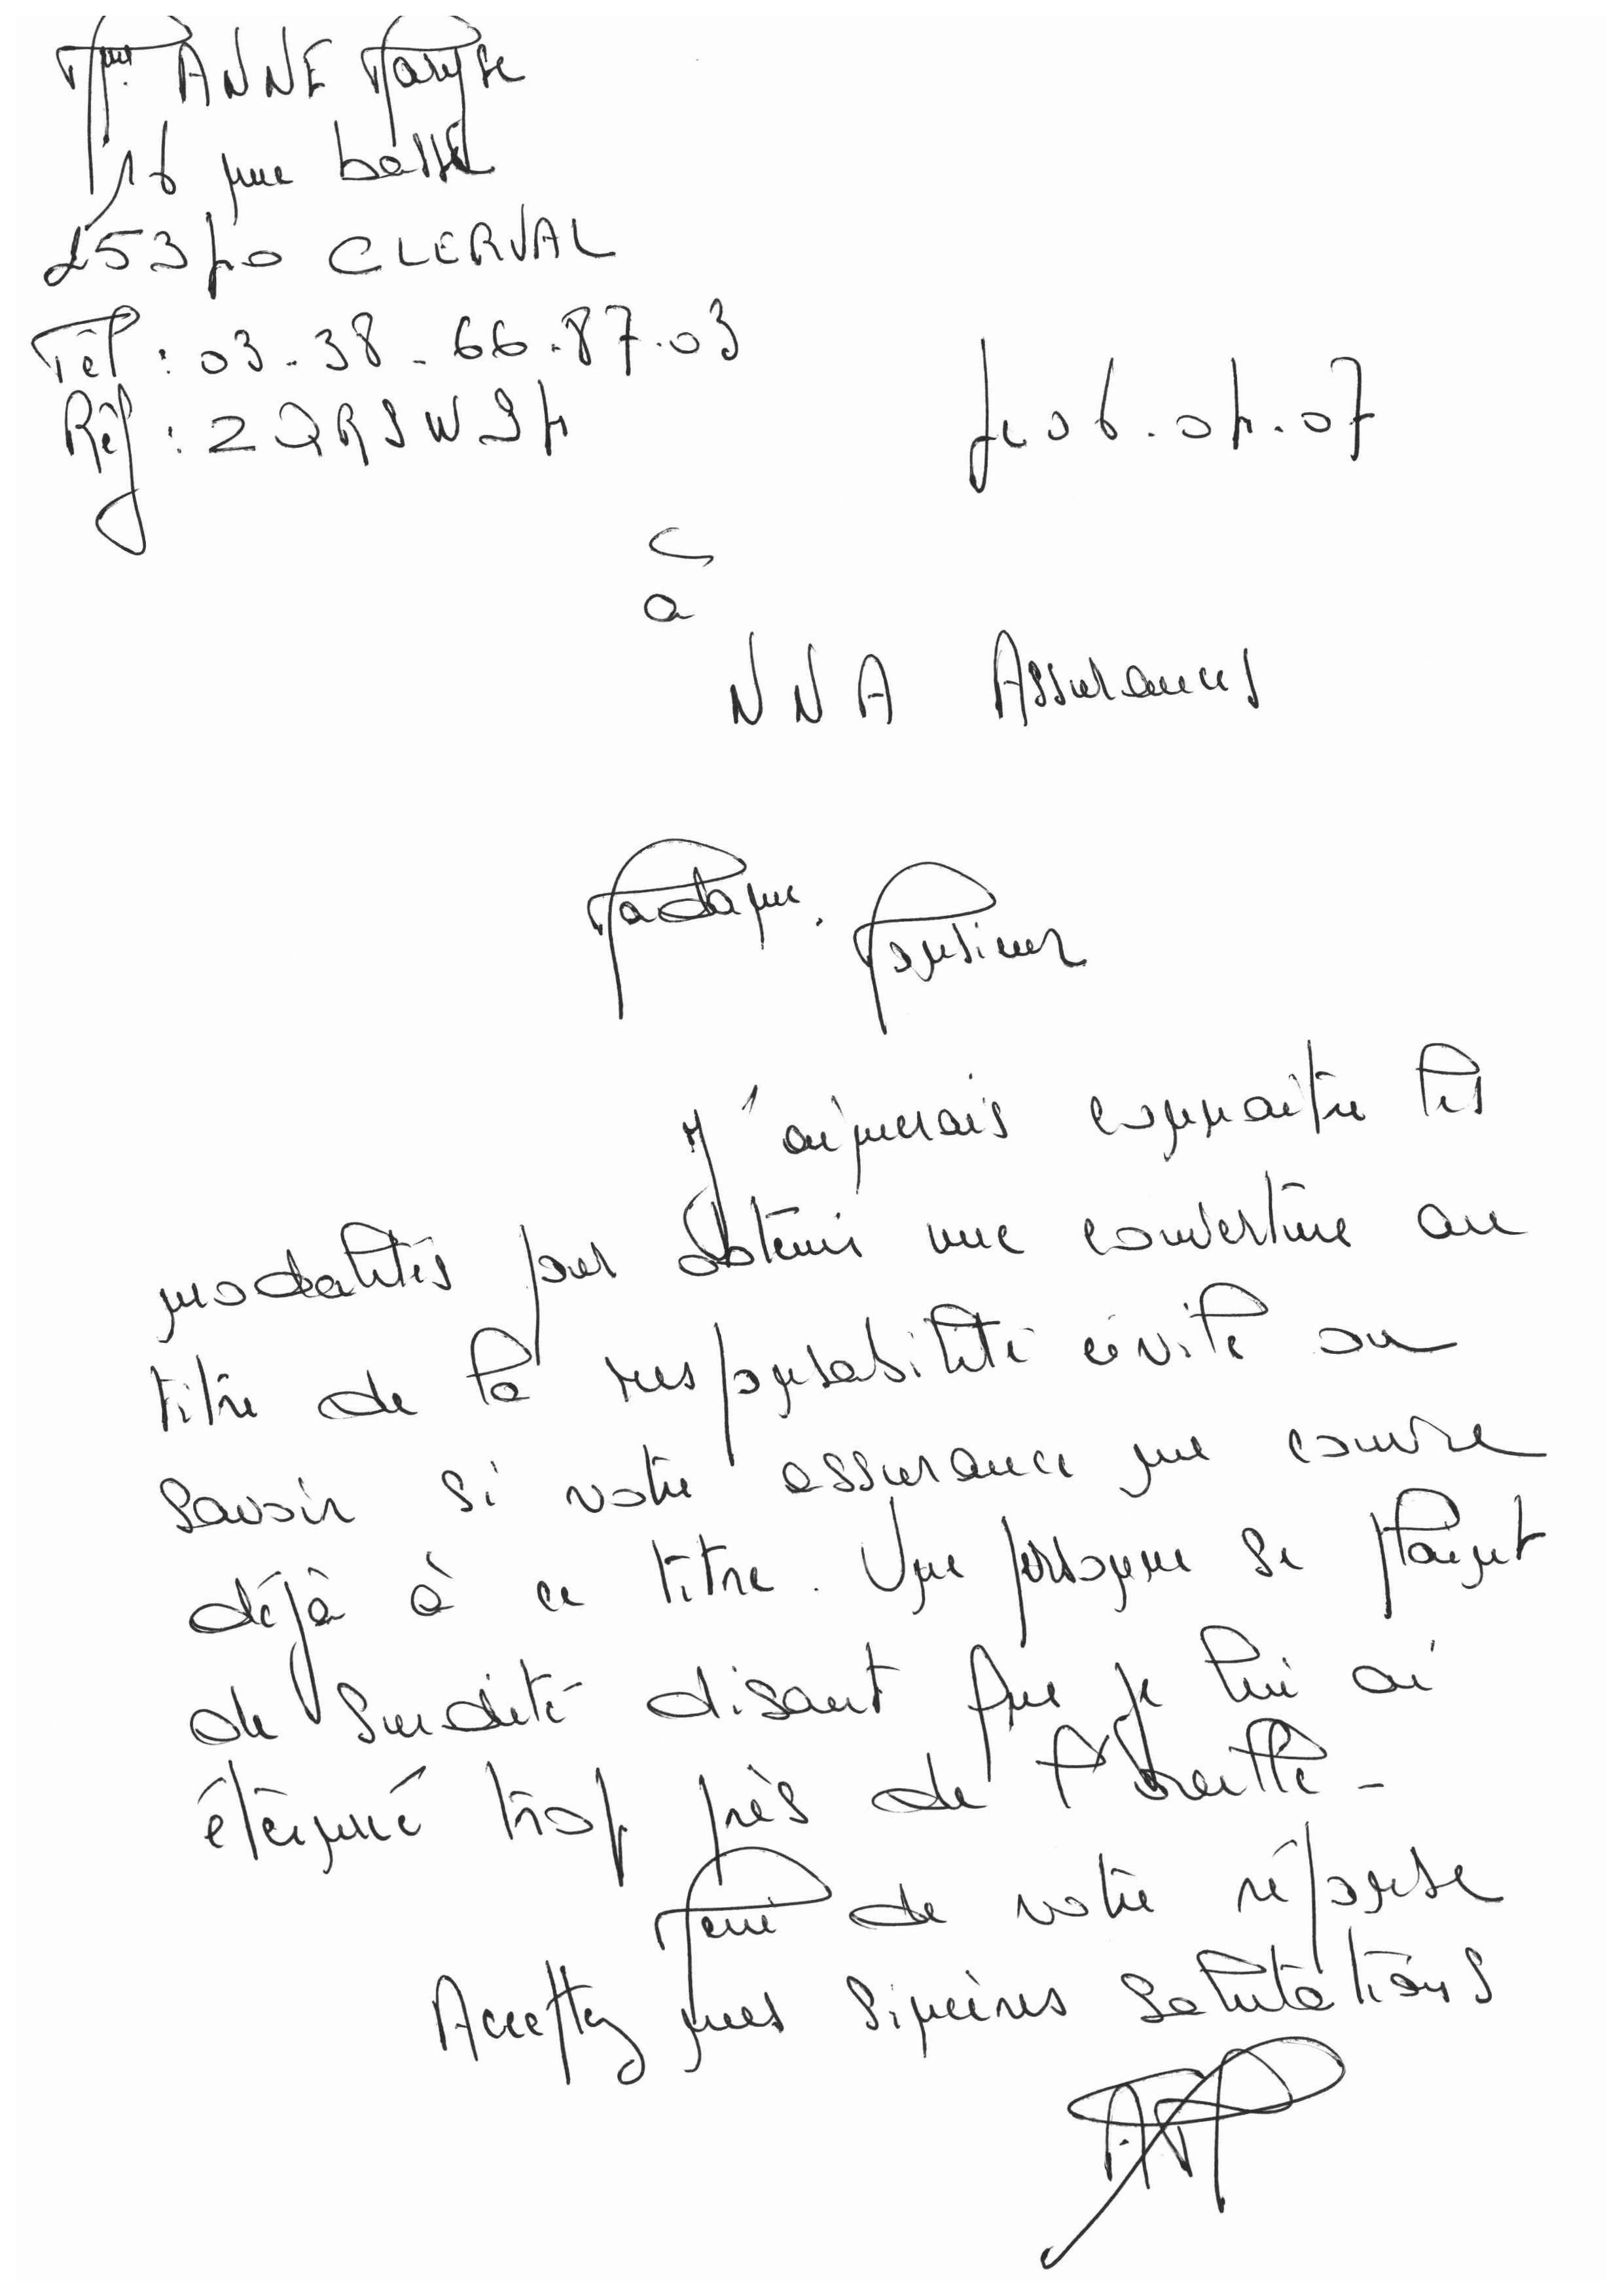 Mme ANNE Maryse
16 rue basse
25340 CLERVAL
Tél : 03.38.66.87.03
Réf : 2QRSWS4
le 06.04.07
à
NNA Assurances
Madame, Monsieur
J'aimerais connaitre les
modalités pour obtenir une couverture au
titre de la responsabilité civile ou
savoir si votre assurance me couvre
déjà à ce titre. Une personne se plaint
de surdité disant que je lui ai
éternué trop près de l'oreille -
Merci de votre réponse
Acceptez mes sincères salutations